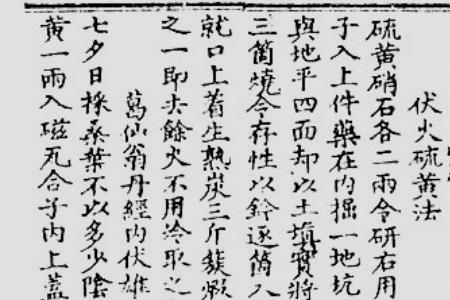 伏火硫黃法
硫黃硝石各二兩令研右用
子入上件藥在內掘一地坑
與地平四面却以土填實將
三箇燒令存性以鈐逐箇入
就口上着生熟炭三斤簇煅
之一即去餘火不用冷取之
葛仙翁丹經內伏雄
七夕日採桑葉不以多少陰
黃一兩入磁瓦合子內上蓋